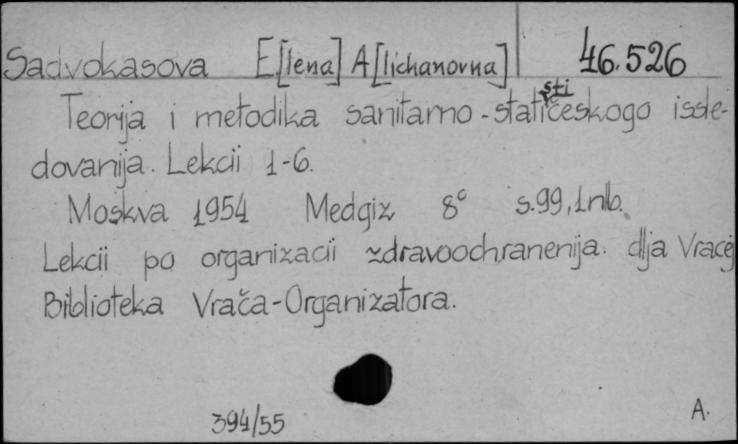 Sadvokasova E[lena] A[lichanovna] 46.526
Teorija i metodika sanitarno-statističeskogo issle-
dovanija. Lekcii 1-6.
Moskva 1954 Medgiz 8° s.99,1nlb.
Lekcii po organizacii zdravoochranenija. dlja Vracej
Biblioteka Vrača-Organizatora.
394/55 A.